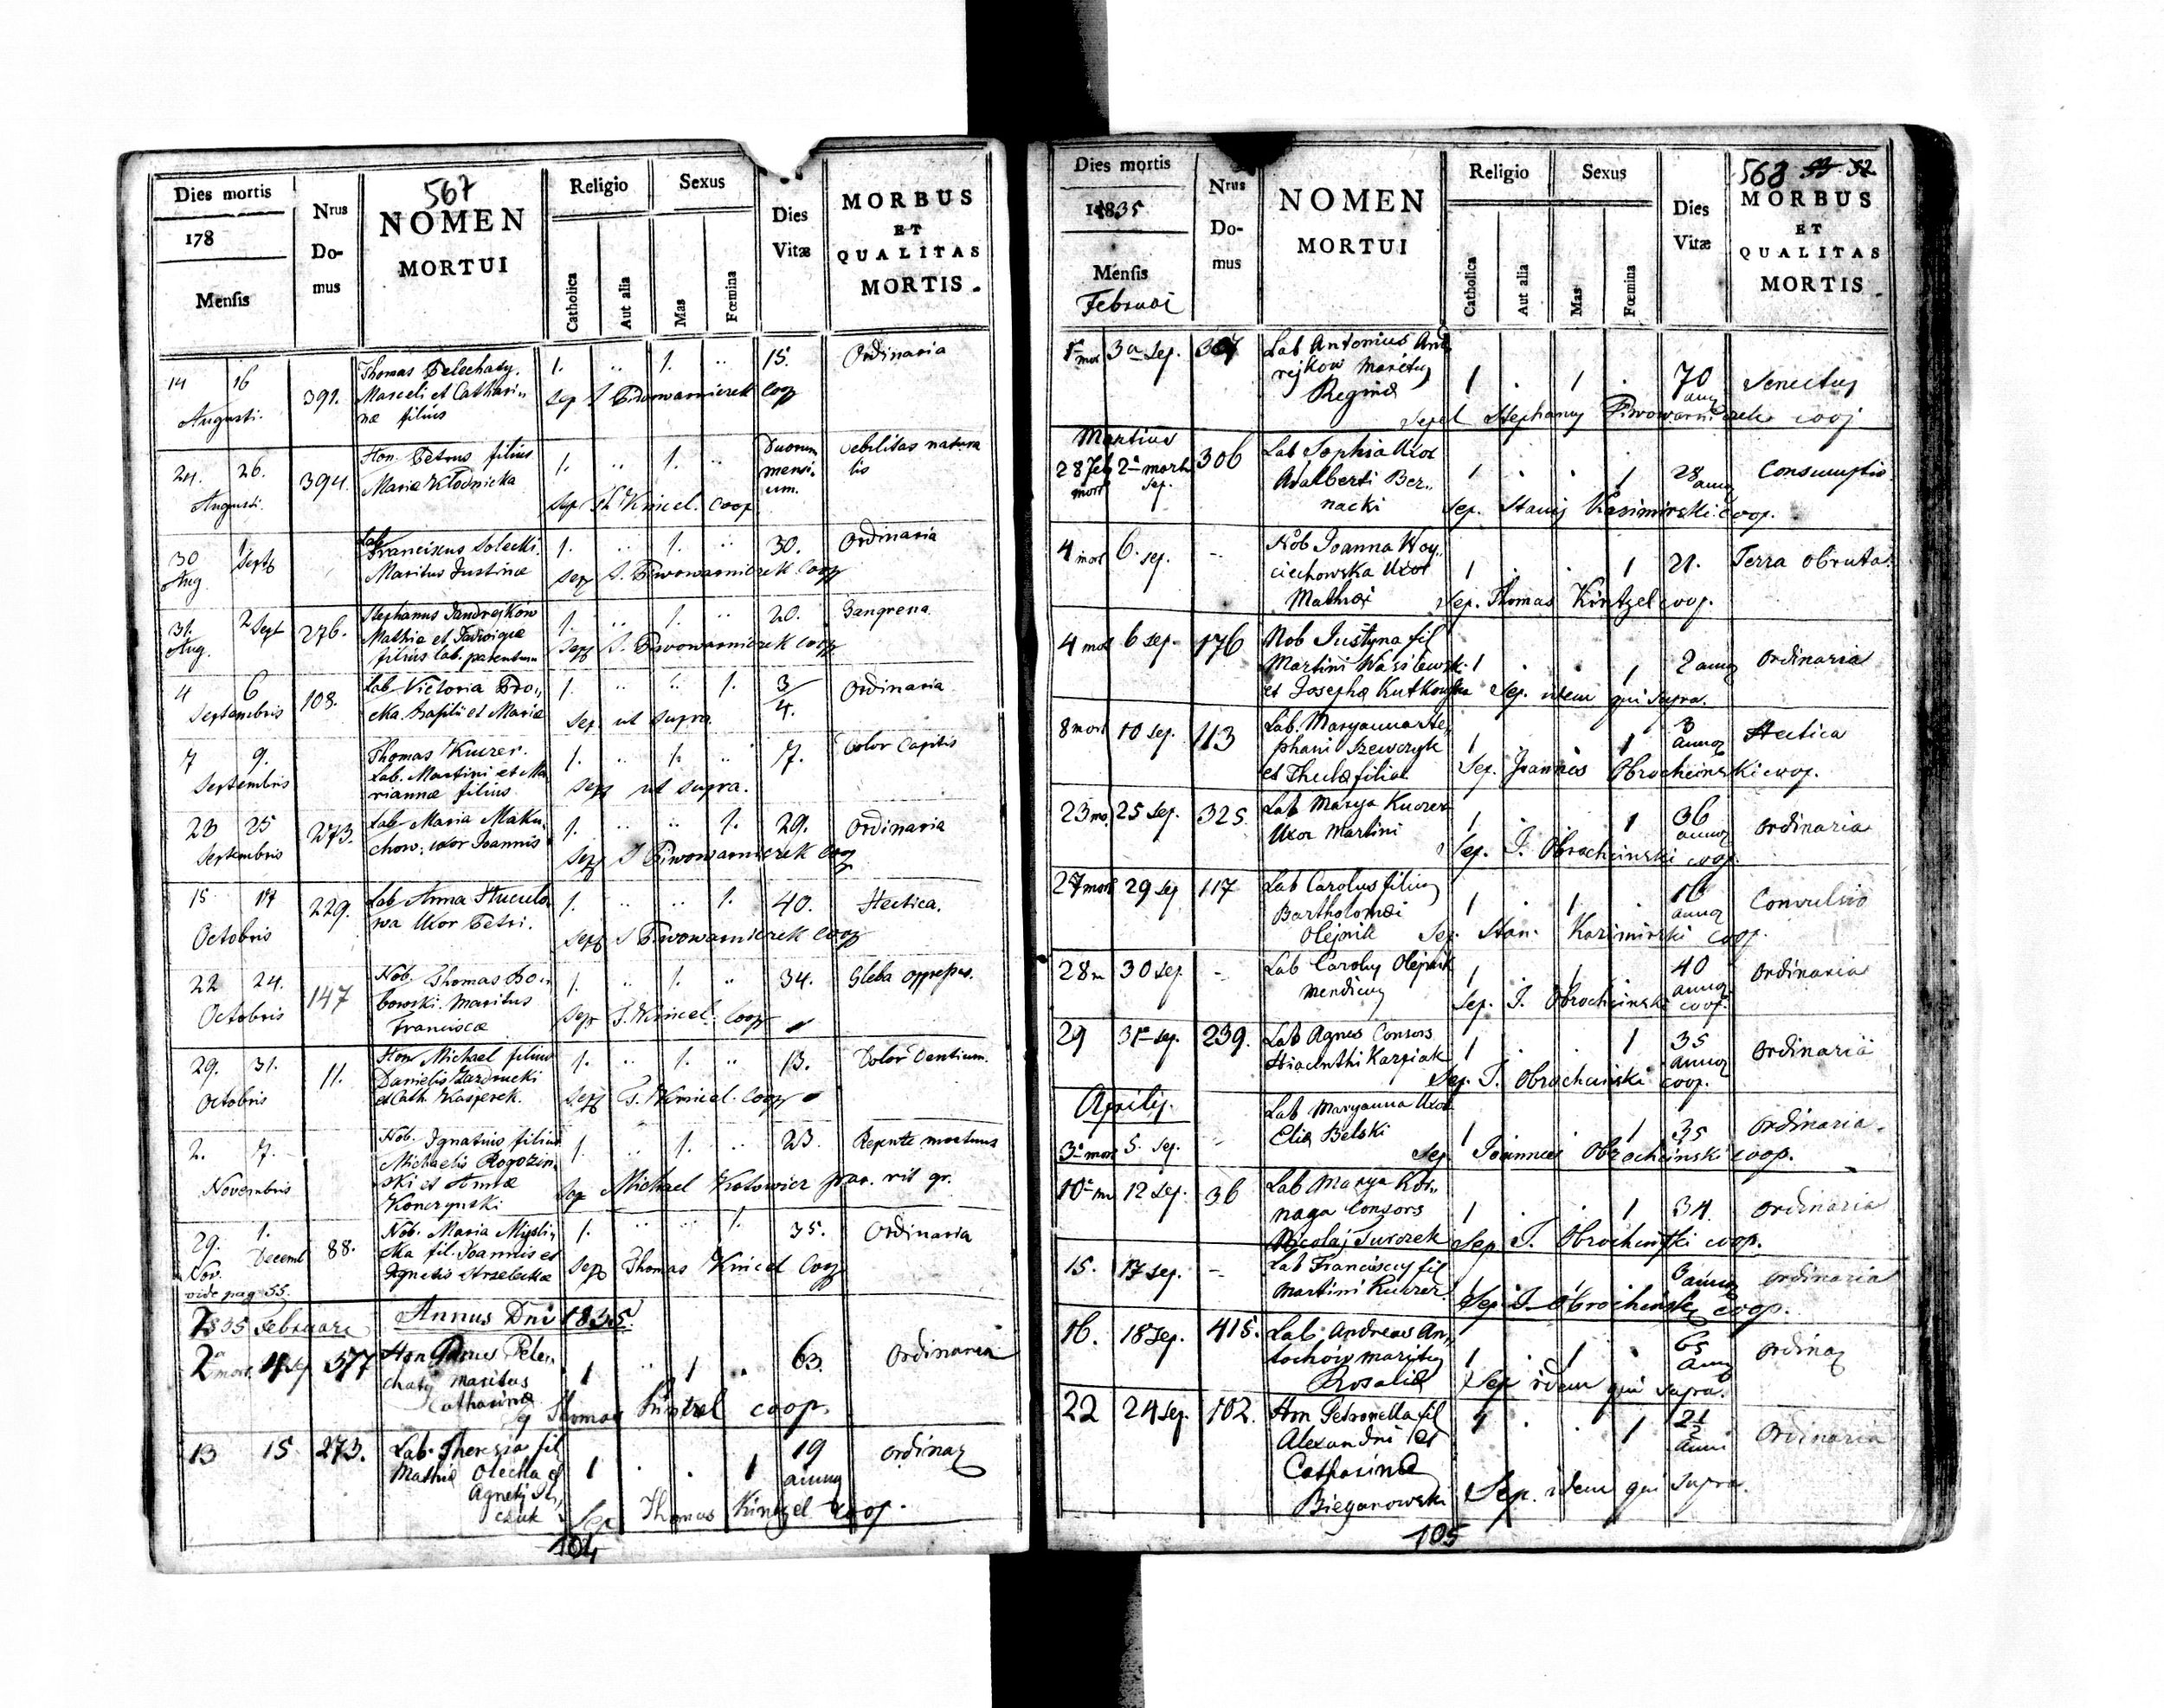 Dies mortis
178
Mensis
Nrus Do-mus
567
NOMEN
MORTUI
Religio
Catholica
Aut alia
Sexus
Mas
Fœmina
Dies
Vitæ
MORBUS
ET
QUALITAS
MORTIS
14 16 391. Thomas Pelechaty 1. .. 1. .. 15. Ordinaria
Augusti. Marceli et Cathari
næ filius Sep S Piwowarnierek Coop
24. 26. 394. Hon. Petrus filius 1. .. 1. .. Duorum mensi-um. debilitas natura
lis
Augusti. Mariæ Kłodnicka
Sep Th Kincel. Coop
30 Aug 1 Sept Lab Franciscus Solecki 1. .. 1. .. 30. Ordinaria
Maritus Justinæ Sep S. Piwowarnierek Coop
31. Aug. 2 Sept 276. Stephanus Jandrejków 1. .. 1. .. 20. Gangrena
Mathiæ et Jadwigæ
filius lab. parentum Sep S. Piwowarnierek Coop
4 6 108. Lab Victoria Bro 1. .. .. 1. 3/4. Ordinaria
Septembris cka. Basilii et Mariæ Sep ut supra
7 9. Thomas Kuczer. 1. .. 1. .. 7. Dolor Capitis
Septembris Lab. Martini et Ma
riannæ filius Sep ut supra.
23 25 273. Lab Maria Maku 1. .. .. 1. 29. Ordinaria
Septembris chow: uxor Joannis Sep S Piwowarnierek Coop
15 17 229. Lab Anna Huculo 1. .. .. 1. 40. Hectica.
Octobris wa Uxor Petri. Sep S Piwowarnierek Coop
22 24. 147 Nob. Thomas Bo 1. .. 1. .. 34. Gleba oppressus.
Octobris bowski. Maritus
Franciscæ Sep T. Kincel. Coop
29. 31. 11. Hon Michael filius 1. .. 1. .. 13. Dolor Dentium.
Octobris Danielis Zardzucki
et Cath. Kasperek. Sep T. Kincel. Coop
2. 7. Nob. Ignatius filius 1. .. 1. .. 23. Repente mortuus
Michaelis Rogozin
Novembris ski et Annæ
Konczynski Sep Michael Kotowicz par. rit gr.
29. Nov. 1. Decemb 88. Nob. Maria Mysli 1. .. .. 1. 35. Ordinaria
cka fil. Joannis et
Agnetis Strzeleckæ Sep Thomas Kincel Coop
vide pag 55.
1835 Februari Annus Dni 1835.
2a mort. 4 Sep 377 Hon Petrus Pele 1 .. 1 .. 63. Ordinaria
chaty maritus
Catharinæ Sep Thomas Kintzel coop.
13 15. 273. Lab. Theresia fil 1 . . 1 19 annoz Ordinaz
Mathiæ Olecka et
Agnetis
czuk Sep Thomas Kintzel coop.
104
Dies mortis
1835
Mensis
Februai
Nrus Do-mus
NOMEN
MORTUI
Religio
Catholica
Aut alia
Sexus
Mas
Fœmina
Dies
Vitæ
568 53 52.
MORBUS
ET
QUALITAS
MORTIS
1a mor 3a Sep. 367 Lab Antonius And
rejkow Maritus 1 . 1 . 70 ann Senectus
Reginæ Sepel Stephanus Piwowarnierek cooj
Martius
28 Feb mort 2a marti sep. 306 Lab Sophia Uxor
Adalberti Ber 1 . . 1 28 annoz Consumptio
nacki Sep. Stanis Kasimirski coop.
4 mor 6. sep. - Nob Joanna Woy
ciechowska Uxor 1 . . 1 21. Terra obruta
Mathæi Sep. Thomas Kintzel coop.
4 mor 6 sep. 176 Nob Justyna fil
Martini Wasilewski 1 . . 1 2 annoz Ordinaria
et Josephæ Kutkowska Sep. idem qui supra.
8 mort 10 sep. 113 Lab. Maryanna Ste
phani Szewczyk 1 . . 1 3 annoz Hectica
et Theclæ filia Sep. Joannes Obrocheinski coop.
23 mo. 25 sep. 325. Lab Marya Kuczer 1 . . 1 36 annoz Ordinaria
Uxor Martini Sep. J. Obrocheinski coop.
27 mort 29 sep 117 Lab Carolus filius
Bartholomæi 1 . 1 . 16 annoz Convulsio
Olejnik Sep. Stan. Kazimirski coop.
28 m 30 sep. - Lab Carolus Olejnik 1 . 1 . 40 annoz Ordinaria
mendicus Sep. J. Obrocheinski coop.
29 31 sep. 239. Lab Agnes Consors 1 . . 1 35 annoz Ordinaria
Hiacinthi Karpiak Sep. J. Obrocheinski coop.
Aprilis.
3a mort 5. sep. - Lab Maryanna Uxor
Eliæ Belski 1 . . 1 35 Ordinaria.
Sep Joannes Obrocheinski coop.
10a m 12 sep. 36 Lab Marya Kor
naga Consors 1 . . 1 34. Ordinaria
Nicolaj Turczek Sep J. Obrocheinski coop.
15. 17 sep. - Lab Franciscus fil 3 annoz Ordinaria
Martini Kuczer Sep. J. Obrocheinski coop.
16. 18 sep. 415. Lab. Andreas An
tochów maritus 1 . 1 . 65 ann Ordinaz
Rosaliæ Sep idem qui supra.
22 24 sep. 102. Hon Petronella fil 1 . . 1 2 1/2 anni Ordinaria
Alexandri et
Catharinæ
Bieganowski Sep. idem qui supra.
105